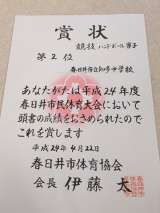 賞状
競技 ハンドボール 男子
第2位
春日井市立知多中学校
あなたがたは平成24年度
春日井市民体育大会において
頭書の成績をおさめられたので
これを賞します
平成24年4月22日
春日井市体育協会
会長 伊藤 太